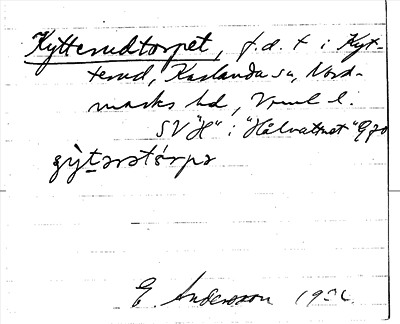 Kytterudtorpet, f.d. t i Kyt-
terud, Karlanda sn, Nord-
marks hd, Vrml l.
SV "H" i "Hålvattnet" G 70
E. Andersson 19